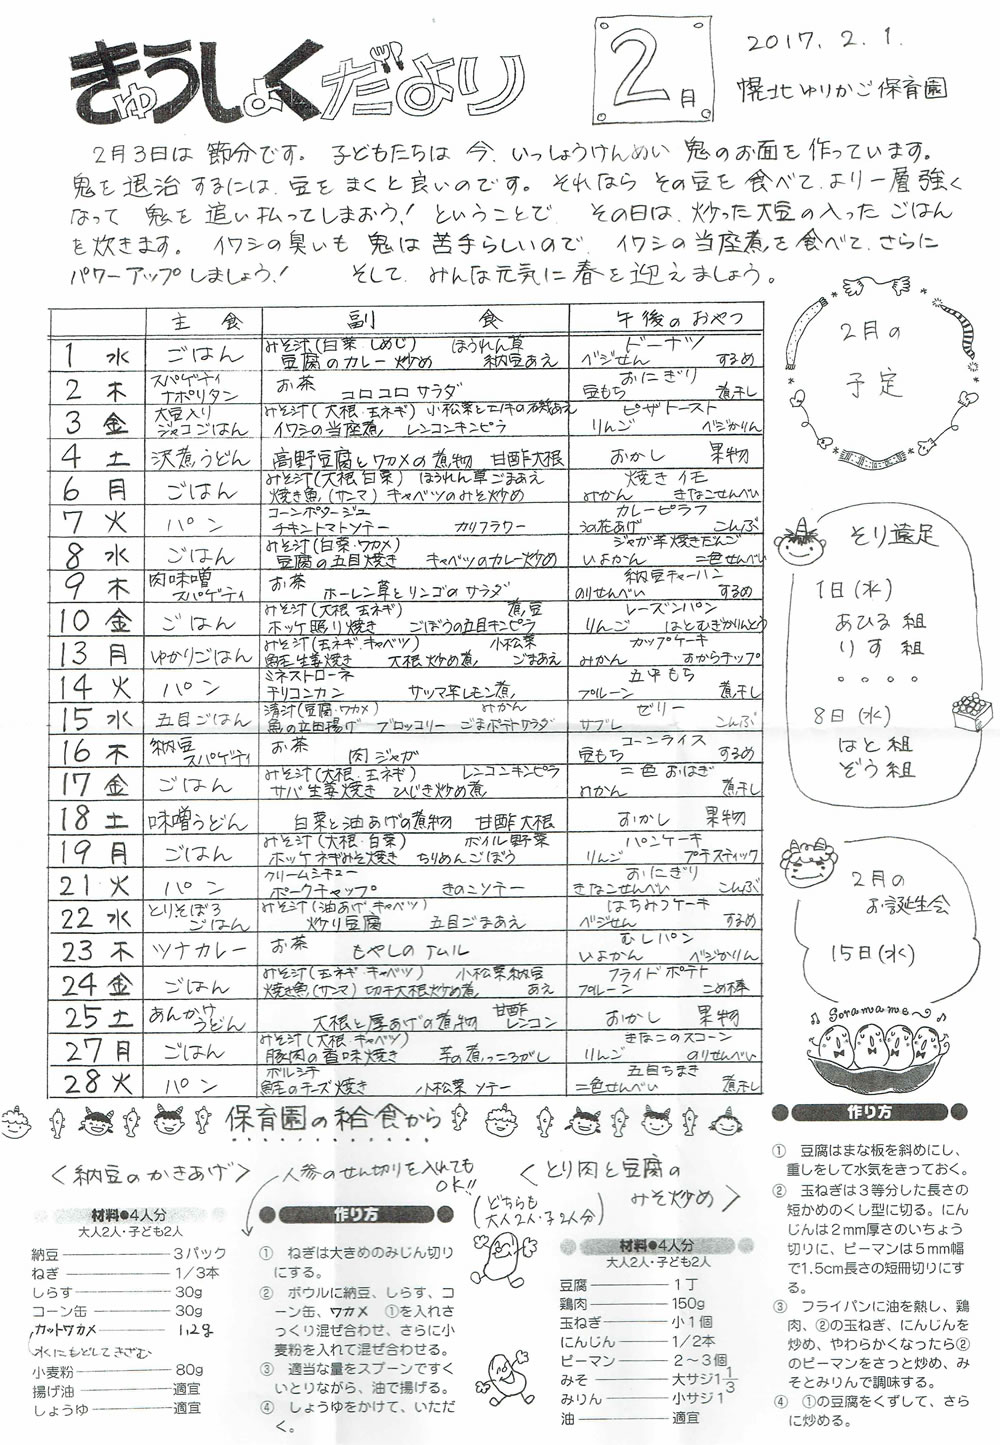 きゅうしょくだより
2月
2017. 2. 1.
幌北ゆりかご保育園
2月3日は 節分です。 子どもたちは 今、いっしょうけんめい 鬼のお面を作っています。
鬼を退治するには、豆をまくと良いのです。それなら その豆を食べて、より一層強く
なって 鬼を追い払ってしまおう! ということで、その日は、炒った大豆の入った ごはん
を炊きます。 イワシの臭いも 鬼は苦手らしいので、イワシの当座煮を食べて、さらに
パワーアップしましょう! そして、みんな元気に春を迎えましょう。
主食 副食 午後のおやつ
1 水 ごはん みそ汁(白菜 しめじ) ほうれん草 ドーナツ
豆腐のカレー炒め 納豆あえ ベジせん するめ
2 木 スパゲティ お茶 おにぎり
ナポリタン コロコロサラダ 豆もち 煮干し
3 金 大豆入り みそ汁(大根・玉ネギ) 小松菜とエノキの磯あえ ピザトースト
ジャコごはん イワシの当座煮 レンコンキンピラ りんご ベジかりん
4 土 沢煮うどん 高野豆腐とワカメの煮物 甘酢大根 おかし 果物
6 月 ごはん みそ汁(大根 白菜) ほうれん草ごまあえ 焼きイモ
焼き魚(サンマ) キャベツのみそ炒め みかん きなこせんべい
7 火 パン コーンポタージュ カレーピラフ
チキントマトソテー カリフラワー のり花あげ こんぶ
8 水 ごはん みそ汁(白菜・ワカメ) ジャガ芋焼きだんご
豆腐の五目焼き キャベツのカレー炒め いよかん 二色せんべい
9 木 肉味噌 お茶 納豆チャーハン
スパゲティ ホーレン草とリンゴのサラダ のりせんべい するめ
10 金 ごはん みそ汁(大根、玉ネギ) 煮豆 レーズンパン
ホッケ照り焼き ごぼうの五目キンピラ りんご はとむぎかりんとう
13 月 ゆかりごはん みそ汁(玉ネギ・キャベツ) 小松菜 カップケーキ
鮭生姜焼き 大根炒め煮 ごまあえ みかん すからチップ
14 火 パン ミネストローネ 五平もち
チリコンカン サツマ芋レモン煮 プルーン 煮干し
15 水 五目ごはん 清汁(豆腐・ワカメ) みかん ゼリー
魚の立田揚げ ブロッコリー ごまポテトサラダ サブレ こんぶ
16 木 納豆 お茶 コーンライス
スパゲティ 肉ジャガ 豆もち するめ
17 金 ごはん みそ汁(大根、玉ネギ) レンコンキンピラ 二色おはぎ
サバ生姜焼き ひじき炒め煮 みかん 煮干し
18 土 味噌うどん 白菜と油あげの煮物 甘酢大根 おかし 果物
19 月 ごはん みそ汁(大根・白菜) ボイル野菜 パンケーキ
ホッケネギみそ焼き ちりめんごぼう りんご プチスティック
21 火 パン クリームシチュー おにぎり
ポークチャップ きのこソテー きなこせんべい こんぶ
22 水 とりそぼろ みそ汁(油あげ キャベツ) はちみつケーキ
ごはん 炒り豆腐 五目ごまあえ ベジせん するめ
23 木 ツナカレー お茶 もやしのナムル むしパン
いよかん ベジかりん
24 金 ごはん みそ汁(玉ネギ・キャベツ) 小松菜納豆 フライドポテト
焼き魚(サンマ) 切干大根炒め煮 あえ プルーン こめ棒
25 土 あんかけ 大根と厚あげの煮物 甘酢 おかし 果物
うどん レンコン
27 月 ごはん みそ汁(大根・キャベツ) きなこのスコーン
豚肉の香味焼き 芋の煮っころがし りんご のりせんべい
28 火 パン ボルシチ 五目ちまき
鮭のチーズ焼き 小松菜ソテー 二色せんべい 煮干し
2月の
予定
そり遠足
1日(水)
あひる組
りす組
8日(水)
はと組
ぞう組
2月の
お誕生会
15日(水)
Soramame
保育園の給食から
<納豆のかきあげ>
人参のせん切りを入れても
OK!!
材料●4人分
大人2人・子ども2人
納豆 3パック
ねぎ 1/3本
しらす 30g
コーン缶 30g
カットワカメ 1.2g
水にもどしてきざむ
小麦粉 80g
揚げ油 適宜
しょうゆ 適宜
作り方
① ねぎは大きめのみじん切り
にする。
② ボウルに納豆、しらす、コ
ーン缶、ワカメ ①を入れさ
っくり混ぜ合わせ、さらに小
麦粉を入れて混ぜ合わせる。
③ 適当な量をスプーンですく
いとりながら、油で揚げる。
④ しょうゆをかけて、いただ
く。
<とり肉と豆腐の
みそ炒め>
(どちらも
大人2人・子2人分)
材料●4人分
大人2人・子ども2人
豆腐 1丁
鶏肉 150g
玉ねぎ 小1個
にんじん 1/2本
ピーマン 2〜3個
みそ 大サジ1 1/3
みりん 小サジ1
油 適宜
作り方
① 豆腐はまな板を斜めにし、
重しをして水気をきっておく。
② 玉ねぎは3等分した長さの
短かめのくし型に切る。にん
じんは2mm厚さのいちょう
切りに、ピーマンは5mm幅
で1.5cm長さの短冊切りにす
る。
③ フライパンに油を熱し、鶏
肉、②の玉ねぎ、にんじんを
炒め、やわらかくなったら②
のピーマンをさっと炒め、み
そとみりんで調味する。
④ ①の豆腐をくずして、さら
に炒める。